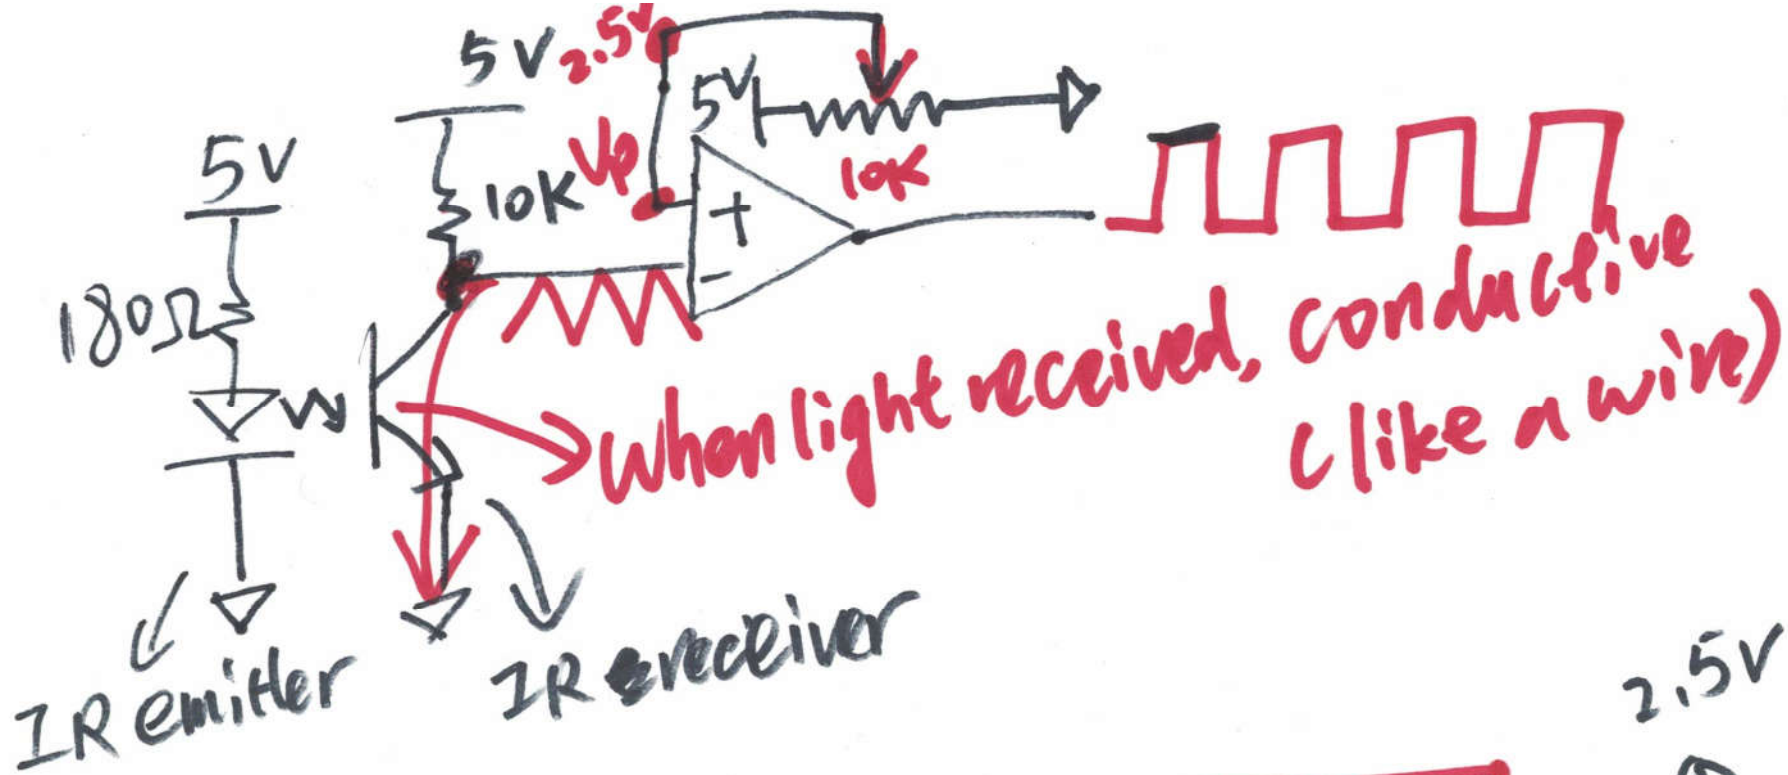 5V
2.5V
5V
5V
10K
Vp
+
10K
-
180Ω
When light received, conductive
(like a wire)
IR emitter
IR receiver
2.5V